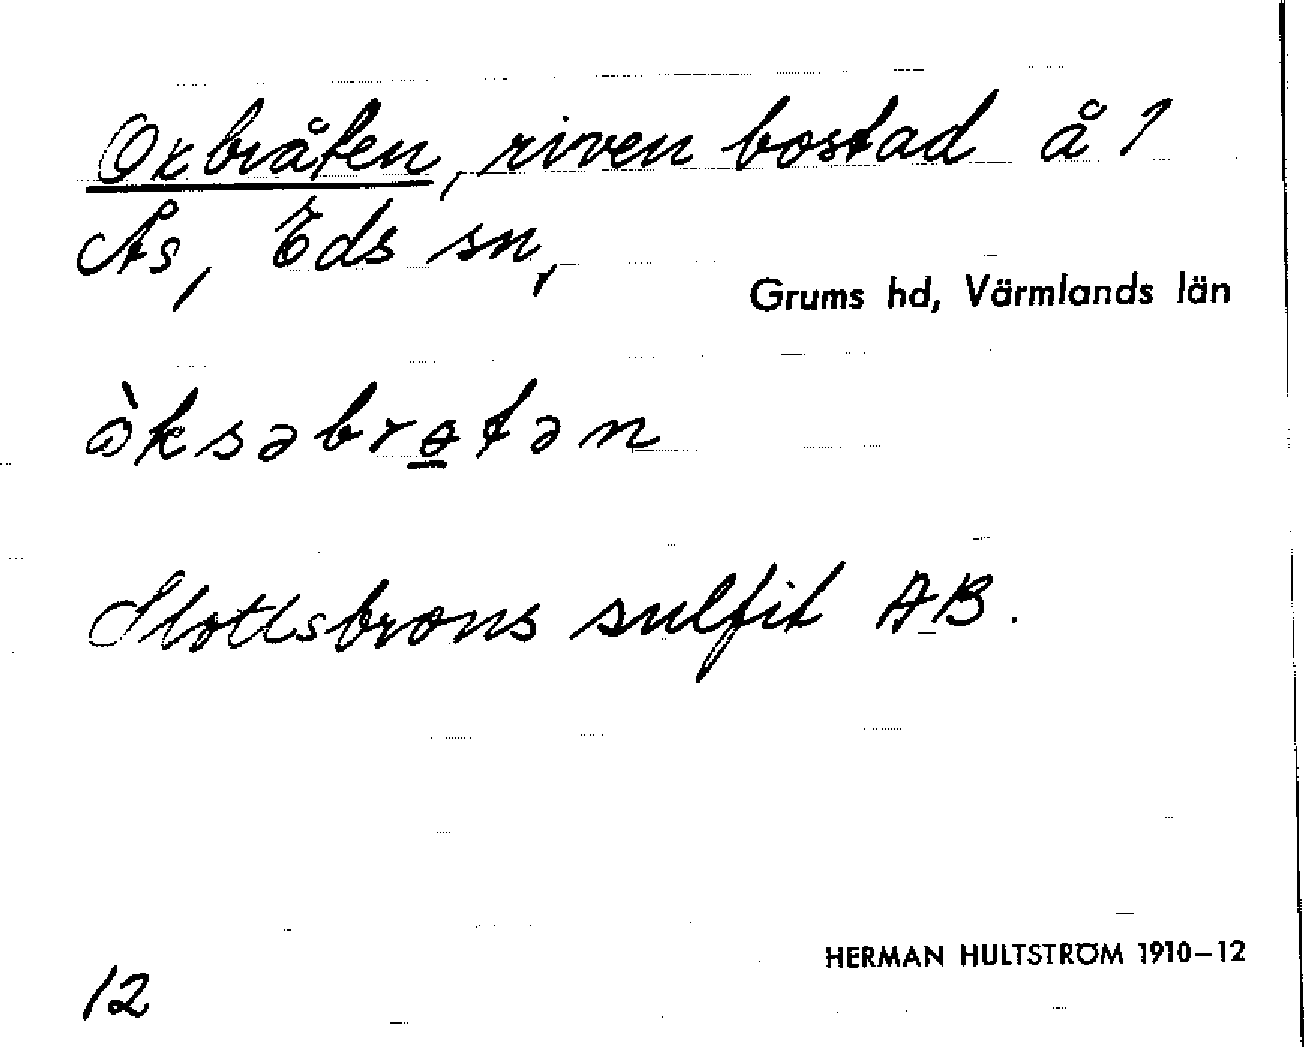 Oxbråten, riven bostad å 1
Ås, Eds sn,
Grums hd, Värmlands län
òksəbrɵtən
Slottsbrons sulfit AB.
HERMAN HULTSTRÖM 1910–12
12